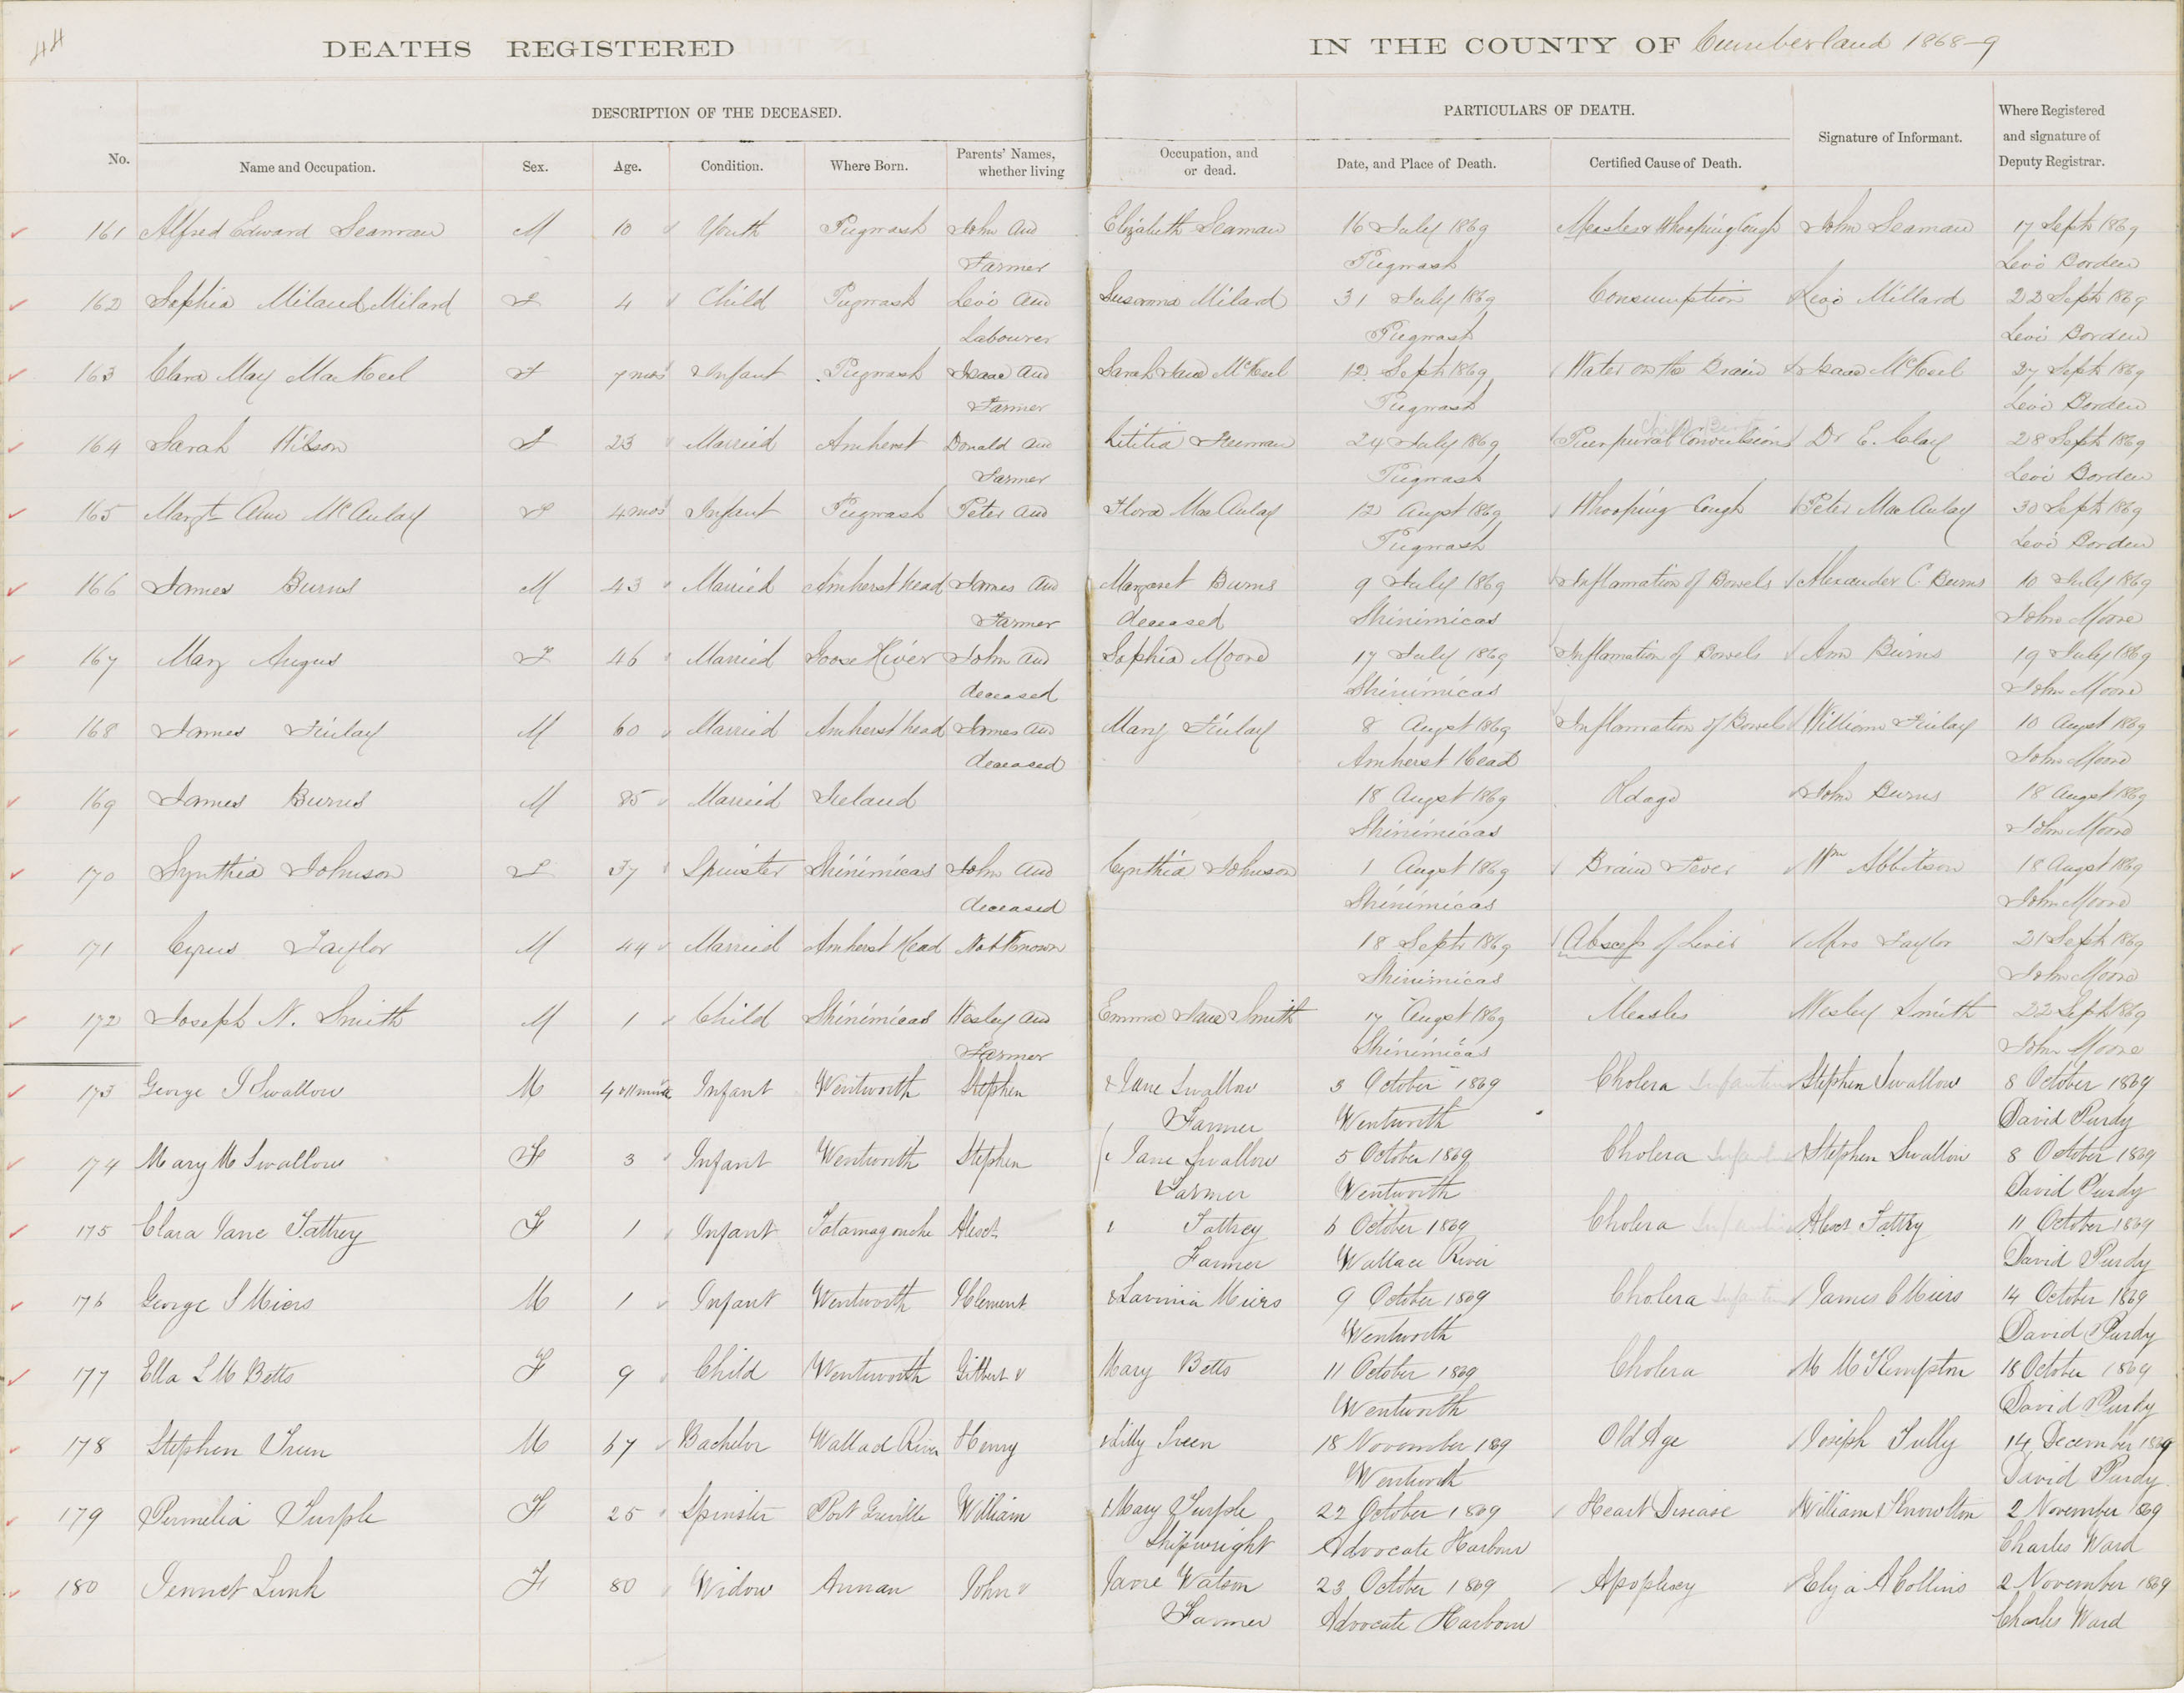 44
DEATHS REGISTERED IN THE COUNTY OF Cumberland 1868-9
DESCRIPTION OF THE DECEASED. PARTICULARS OF DEATH.
No. Name and Occupation. Sex. Age. Condition. Where Born. Parents' Names, whether living Occupation, and or dead. Date, and Place of Death. Certified Cause of Death. Signature of Informant. Where Registered and signature of Deputy Registrar.
161 Alfred Edward Seaman M 10 Youth Pugwash John and Elizabeth Seaman 16 July 1869 Measles & Whooping Cough John Seaman 17 Sept 1869
Farmer Pugwash Levi Borden
162 Sophia Milard F 4 Child Pugwash Levi and Susanna Milard 31 July 1869 Consumption Levi Millard 22 Sept 1869
Labourer Pugwash Levi Borden
163 Clara May MacKeel F 7 mos Infant Pugwash Isaac and Sarah Jane McKeel 12 Sept 1869 Water on the Brain Isaac McKeel 27 Sept 1869
Farmer Pugwash Levi Borden
164 Sarah Wilson F 23 Married Amherst Donald and Letitia 24 July 1869 Puerpural Convulsions Dr E. Clay 28 Sept 1869
Farmer Pugwash Levi Borden
165 Margt Ann McAulay F 4 mos Infant Pugwash Peter and Flora MacAulay 12 Augst 1869 Whooping Cough Peter MacAulay 30 Sept 1869
Pugwash Levi Borden
166 James Burns M 43 Married Amherst head James and Margaret Burns 9 July 1869 Inflamation of Bowels Alexander C. Burns 10 July 1869
Farmer deceased Shinimicas John Moore
167 Mary Angus F 46 Married Goose River John and Sophia Moore 17 July 1869 Inflamation of Bowels Ann Burns 19 July 1869
deceased Shinimicas John Moore
168 James Finlay M 60 Married Amherst head James and Mary Finlay 8 Augst 1869 Inflamation of Bowels William Finlay 10 Augst 1869
deceased Amherst Head John Moore
169 James Burns M 85 Married Ireland 18 Augst 1869 Oldage John Burns 18 Augst 1869
Shinimicas John Moore
170 Synthia Johnson F 37 Spinster Shinimicas John and Cynthia Johnson 1 Augst 1869 Brain Fever Wm Abbitson 18 Augst 1869
deceased Shinimicas John Moore
171 Cyrus Taylor M 44 Married Amherst Head Not Known 18 Septr 1869 Abscess of Liver Mrs Taylor 21 Sept 1869
Shinimicas John Moore
172 Joseph N. Smith M 1 Child Shinimicas Wesley and Emma Jane Smith 17 Augst 1869 Measles Wesley Smith 22 Sept 1869
Farmer Shinimicas John Moore
173 George I Swallow M Infant Wentworth Stephen & Jane Swallow 3 October 1869 Cholera Infantum Stephen Swallow 8 October 1869
Farmer Wentworth David Purdy
174 Mary M Swallow F 3 Infant Wentworth Stephen & Jane Swallow 5 October 1869 Cholera Infantum Stephen Swallow 8 October 1869
Farmer Wentworth David Purdy
175 Clara Jane Tattrey F 1 Infant Tatamagouche Alexr & Tattrey 6 October 1869 Cholera Infantum Alexr Tattry 11 October 1869
Farmer Wallace River David Purdy
176 George S Miers M 1 Infant Wentworth Clement & Lavinia Miers 9 October 1869 Cholera Infantum James C Miers 14 October 1869
Wentworth David Purdy
177 Ella L M Betts F 9 Child Wentworth Gilbert & Mary Betts 11 October 1869 Cholera M M Kempton 18 October 1869
Wentworth David Purdy
178 Stephen Treen M 67 Bachelor Wallace River Henry & Lilly Treen 18 November 1869 Old Age Joseph Tully 14 December 1869
Wentworth David Purdy
179 Permelia Surple F 25 Spinster Port Greville William & Mary Surple 22 October 1869 Heart Disease William Knowlton 2 November 1869
Shipwright Advocate Harbour Charles Ward
180 Jennet Lunk F 80 Widow Annan John & Jane Watson 23 October 1869 Apoplexy A Collins 2 November 1869
Farmer Advocate Harbour Charles Ward